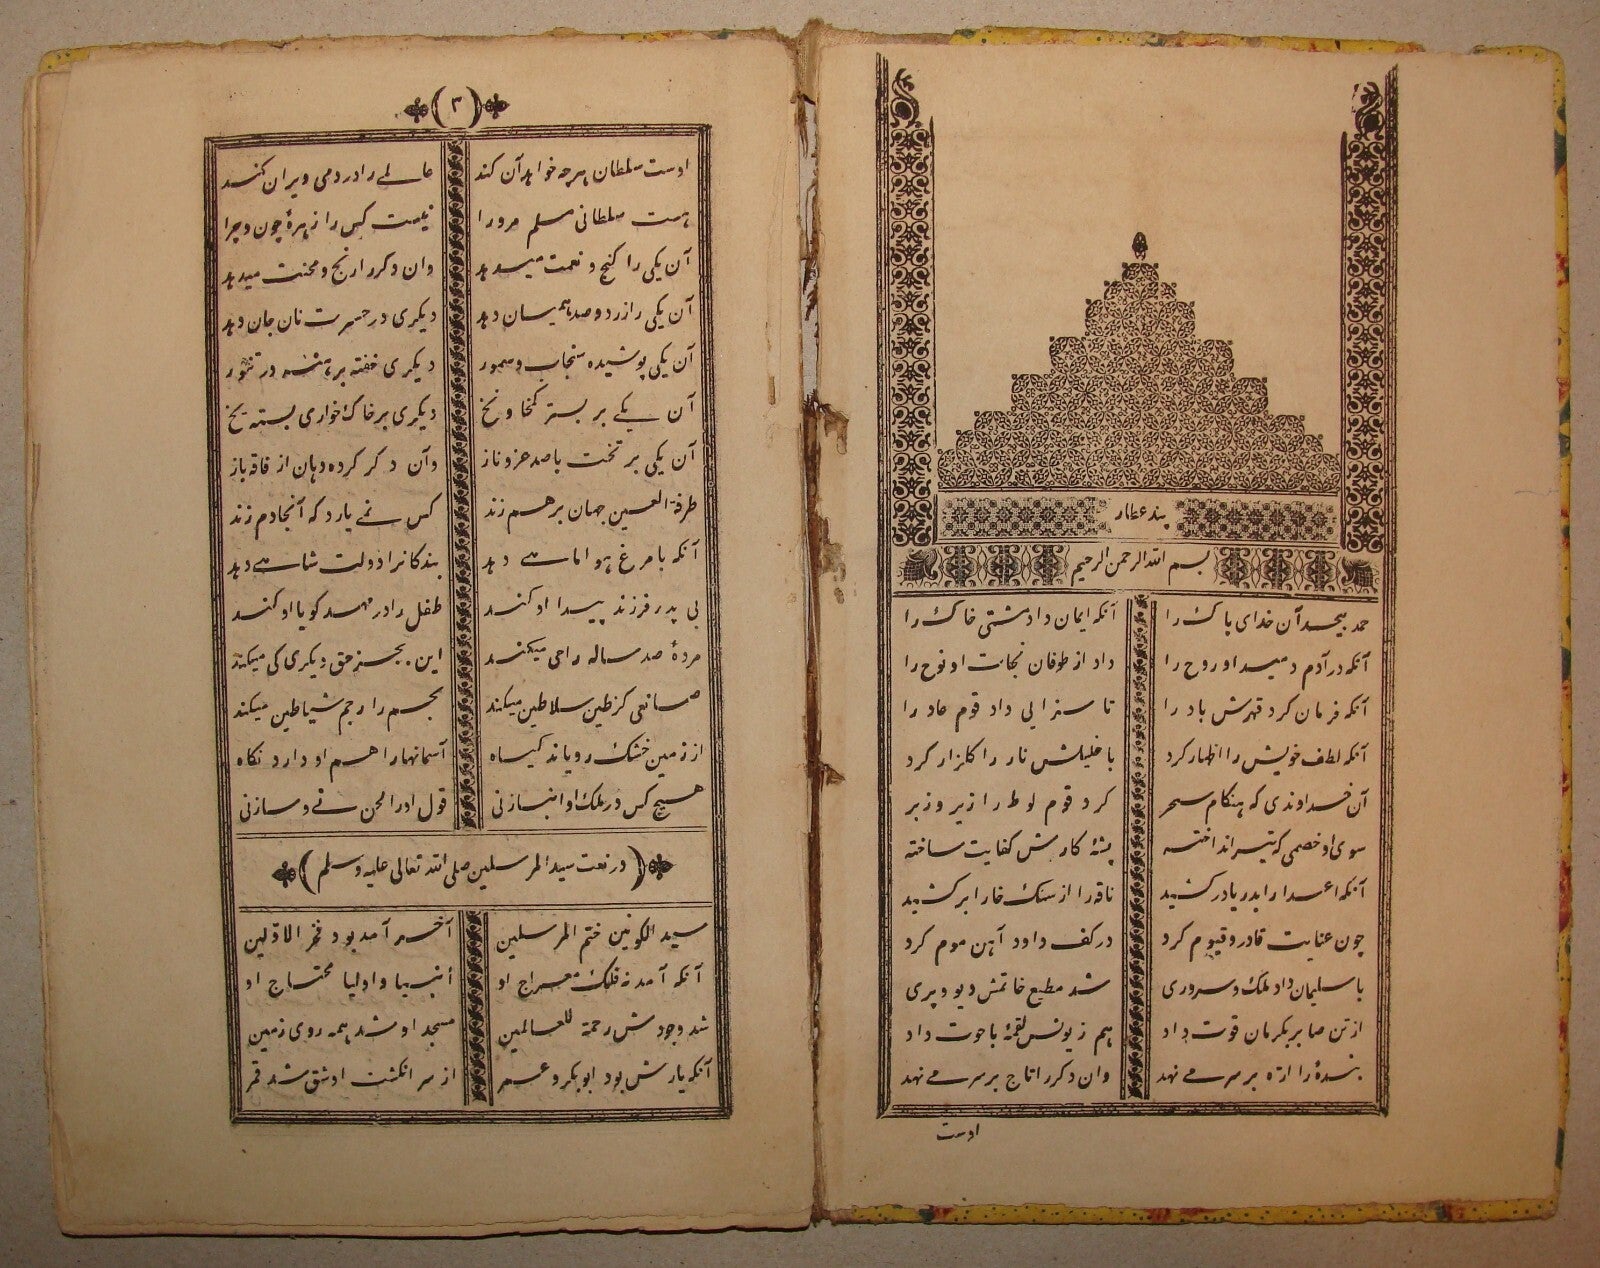 پند عطار
بسم الله الرحمن الرحیم
حمد بیحد آن خدای پاک را آنکه ایمان داد مشتی خاک را
آنکه در آدم دمید او روح را داد از طوفان نجات او نوح را
آنکه فرمان کرد قهرش باد را تا سزایی داد قوم عاد را
آنکه لطف خویش را اظهار کرد با خلیلش نار را کلزار کرد
آن خداوندی که هنکام سحر کرد قوم لوط را زیر و زبر
سوی او خصمی که تیر انداخته پشهٔ کارش کفایت ساخته
آنکه اعدا را بدریا درکشید ناقه را از سنک خارا برکشید
چون عنایت قادر و قیوم کرد در کف داود آهن موم کرد
با سلیمان داد ملک و سروری شد مطیع خاتمش دیو و پری
از تن صابر بکرمان قوت داد هم ز یونس لقمهٔ با حوت داد
بندهٔ را ارّه بر سر می نهد وان دکر را تاج بر سر می نهد
اوست
(٣)
اوست سلطان هرچه خواهد آن کند عالمی را در دمی ویران کند
هست سلطانی مسلم مر ورا نیست کس را زهرهٔ چون و چرا
آن یکی را کنج و نعمت میدهد وان دکر را رنج و محنت میدهد
آن یکی را زر دو صد همیان دهد دیکری در حسرت نان جان دهد
آن یکی پوشیده سنجاب و سمور دیکری خفته برهنه در تنور
آن یکی بر بستر کمخا و نخ دیکری بر خاک خواری بسته یخ
آن یکی بر تخت با صد عز و ناز وآن دکر کرده دهان از فاقه باز
طرفة العین جهان برهم زند کس نمی یارد که آنجا دم زند
آنکه با مرغ هوا ماهی دهد بندکانرا دولت شاهی دهد
بی پدر فرزند پیدا او کند طفل را در مهد کویا او کند
مردهٔ صد ساله را حی میکند این بجز حق دیکری کی میکند
صانعی کز طین سلاطین میکند نجم را رجم شیاطین میکند
از زمین خشک رویاند کیاه آسمانها را هم او دارد نکاه
هیچ کس در ملک او انباز نی قول او را لحن نی و ساز نی
(در نعت سید المرسلین صلی الله تعالی علیه وسلم)
سید الکونین ختم المرسلین آخر آمد بود فخر الاوّلین
آنکه آمد نه فلک معراج او أنبیا و اولیا محتاج او
شد وجودش رحمة للعالمین مسجد او شد همه روی زمین
آنکه یارش بود ابوبکر و عمر از سر انکشت او شق شد قمر